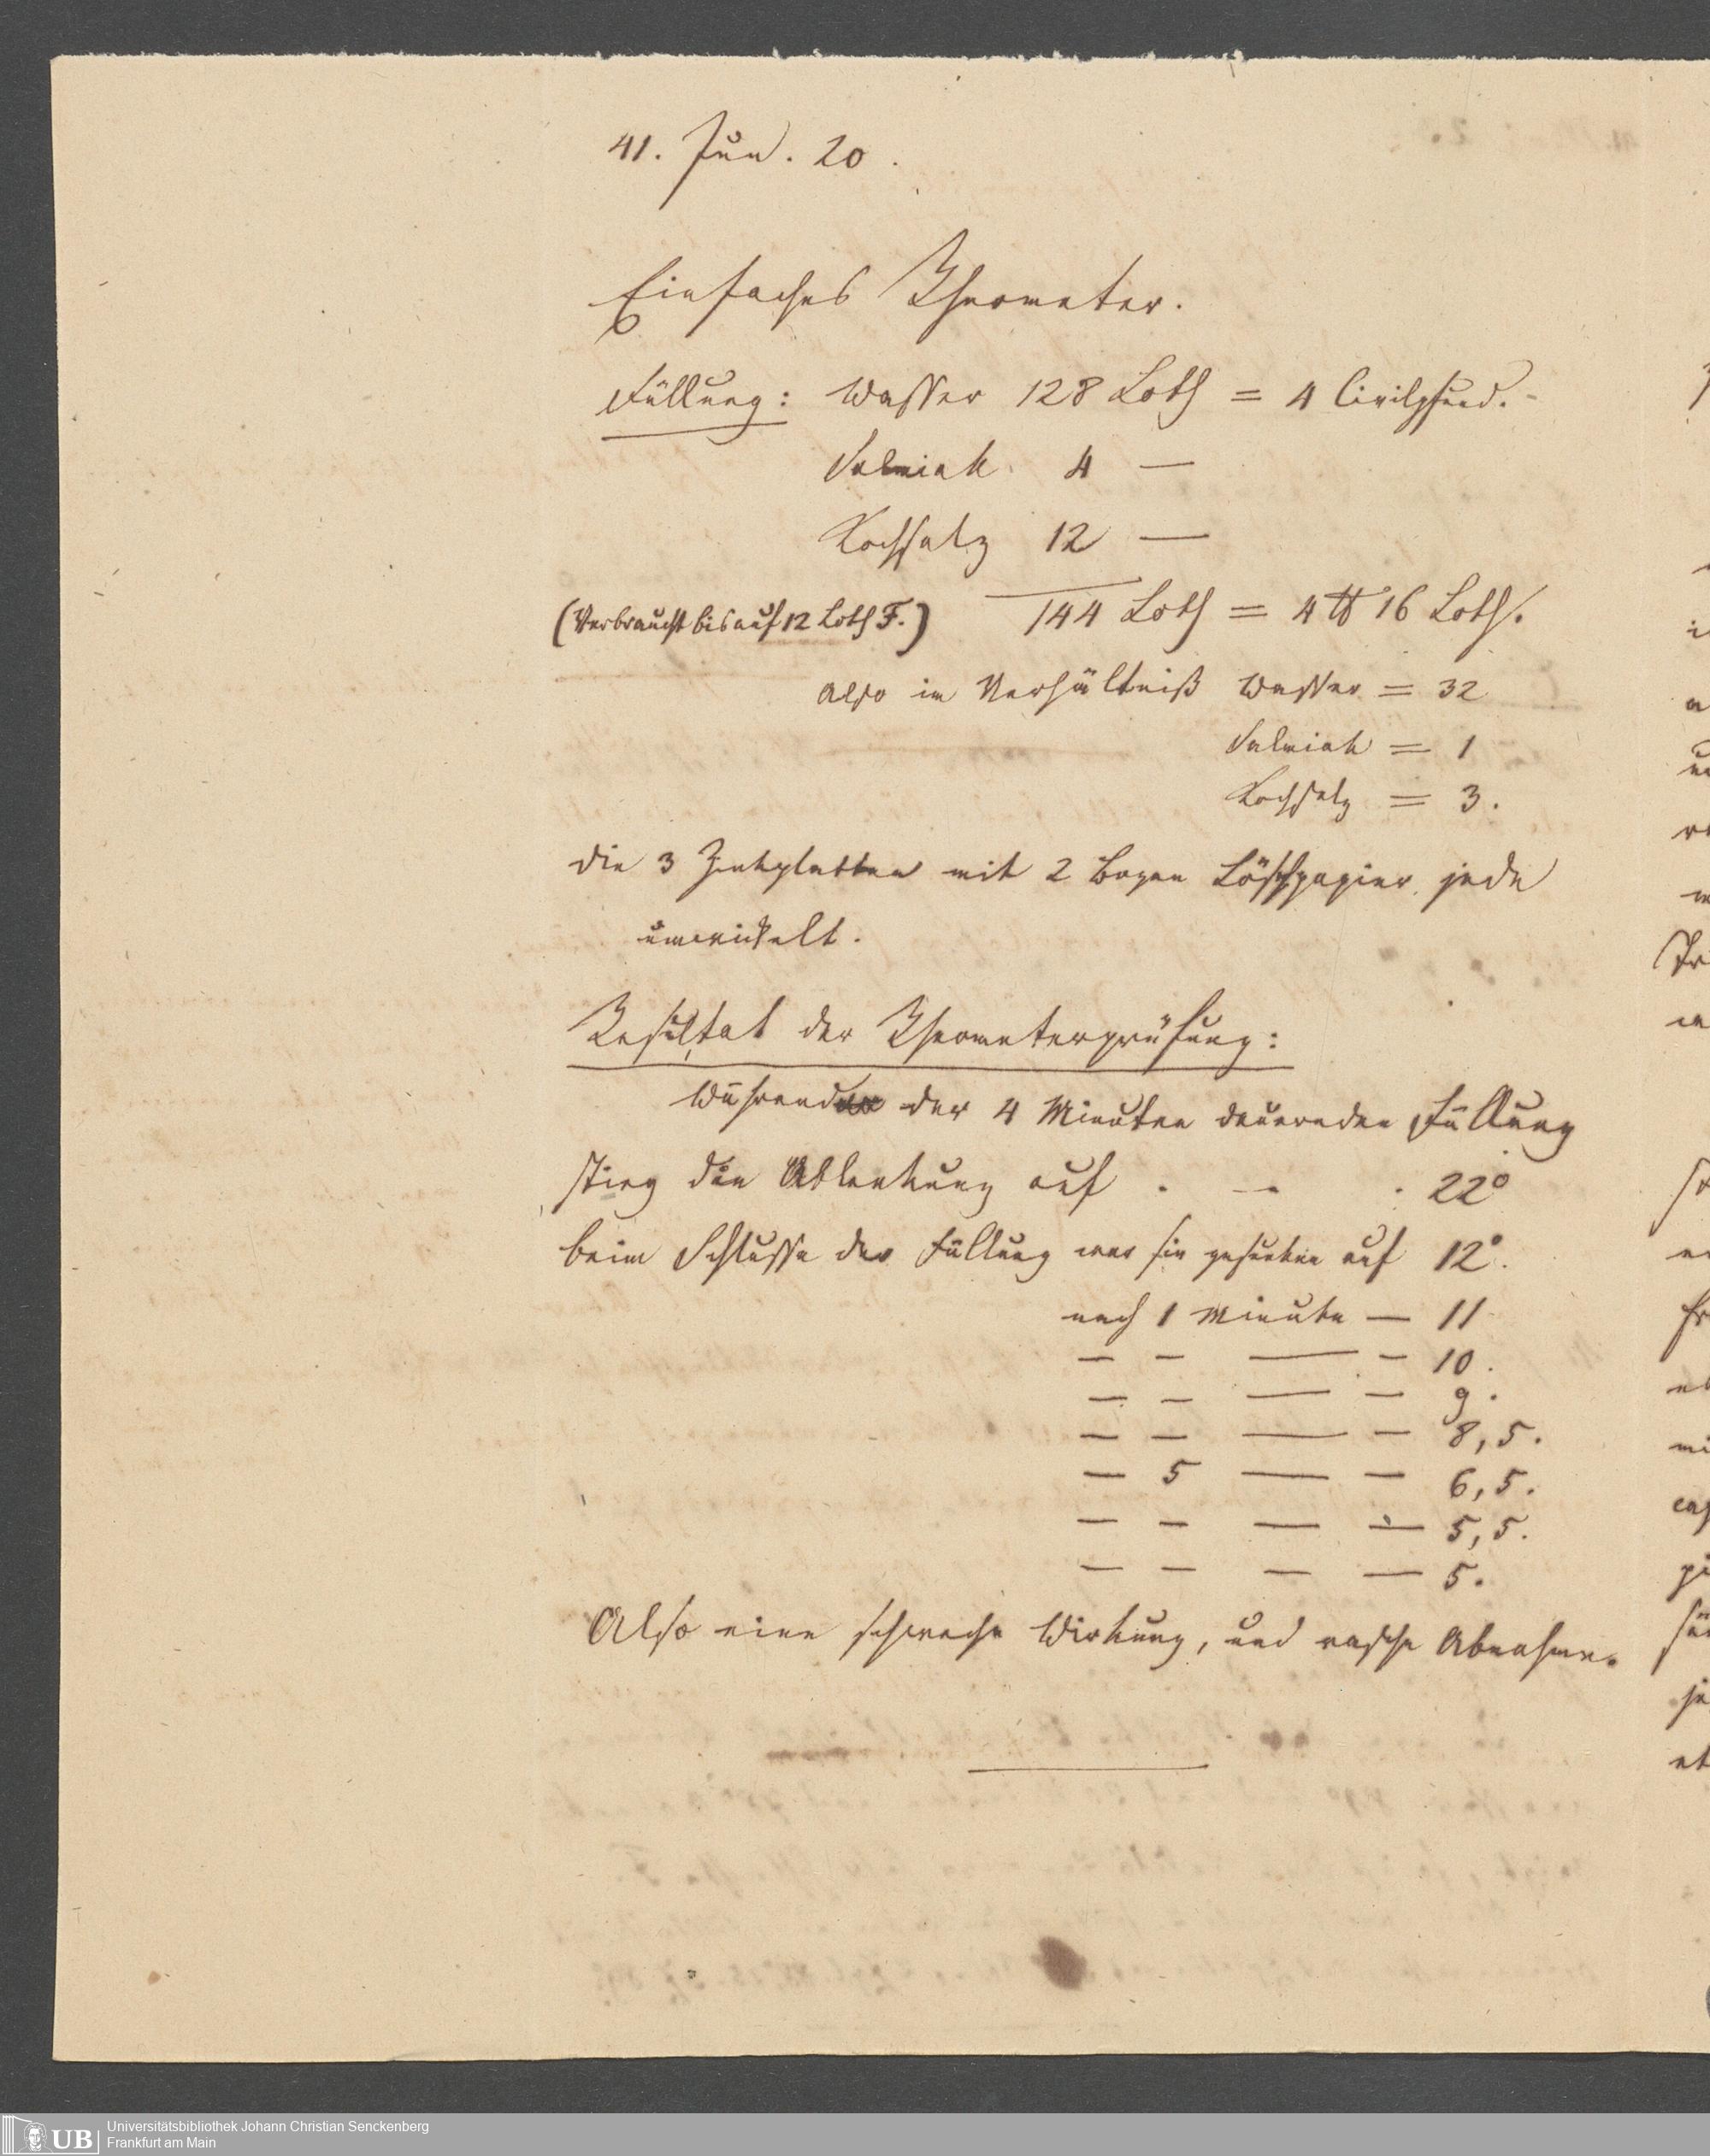 41. Jun. 20.
Einfaches Rheometer.
Füllung: Wasser 128 Loth = 4 Civilpfund.
Salmiak 4 —
Kochsalz 12 —
(Verbraucht bis auf 12 Loth F.) 144 Loth = 4 ℔ 16 Loth.
Also im Verhältniß Wasser = 32
Salmiak = 1
Kochsalz = 3.
die 3 Zinkplatten mit 2 Bogen Löschpapier jede
umwickelt.
Resultat der Rheometerprüfung:
Während der 4 Minuten dauernden Füllung
stieg die Ablenkung auf . — . 22°
beim Schlusse der Füllung war sie gesunken auf 12°.
nach 1 Minute — 11
— — — — 10.
— — — — 9.
— — — — 8,5.
— 5 — — 6,5.
— — — — 5,5.
— — — — 5.
Also eine schwache Wirkung, und rasche Abnahme.
UB Universitätsbibliothek Johann Christian Senckenberg
Frankfurt am Main